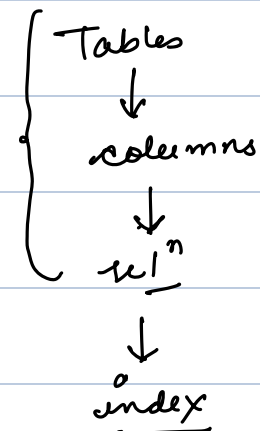 Tables
↓
columns
↓
relⁿ
↓
index